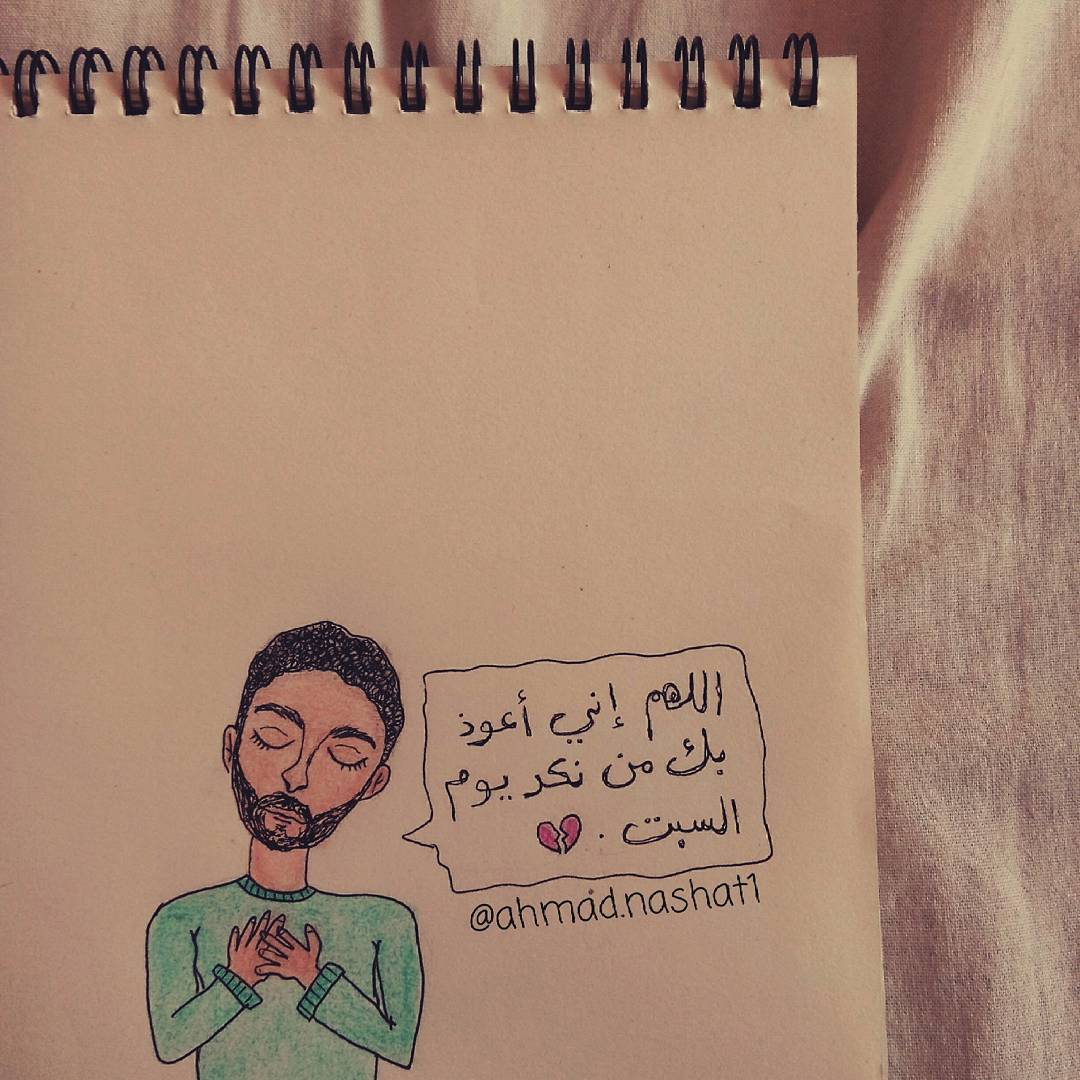 اللهم إني أعوذ
بك من نكد يوم
السبت .
@ahmad.nashat1